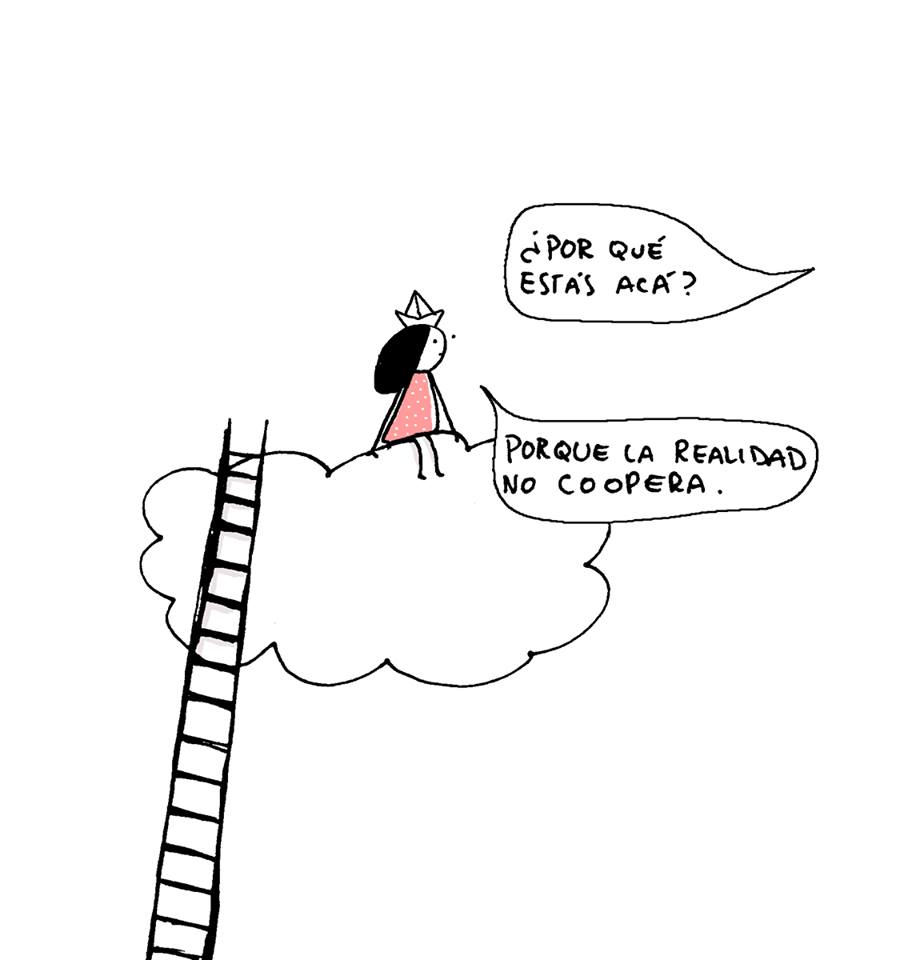 ¿POR QUÉ
ESTÁS ACÁ?
PORQUE LA REALIDAD
NO COOPERA.